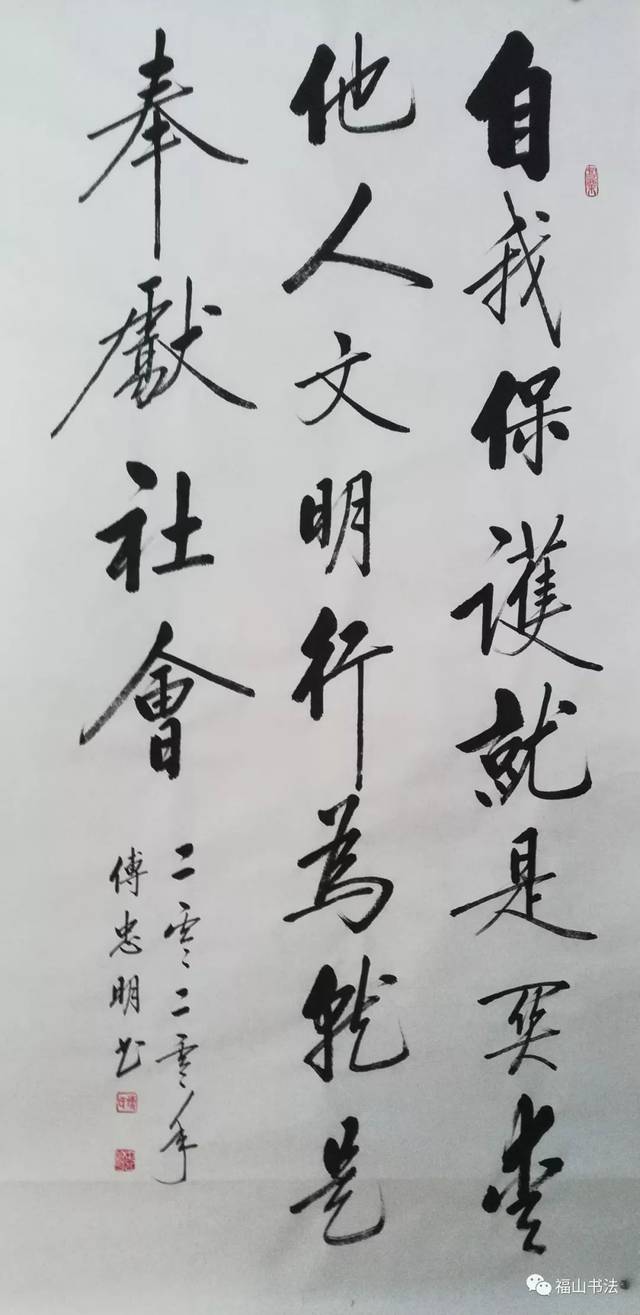 自我保護就是关爱
他人文明行為就是
奉獻社會
二零二零年
傅忠明书
福山书法